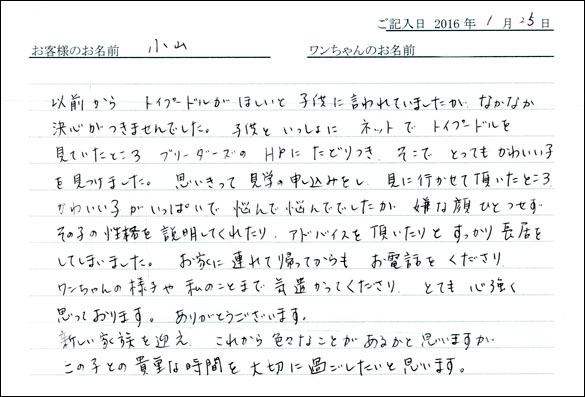 ご記入日 2016年 1月 25日
お客様のお名前 小山 ワンちゃんのお名前
以前から トイプードルが ほしいと 子供に言われていましたが、なかなか
決心がつきませんでした。 子供と いっしょに ネットで トイプードルを
見ていたところ ブリーダーズの HPに たどりつき、そこで とってもかわいい子
を見つけました。 思いきって 見学の申し込みをし、見に行かせて頂いたところ
かわいい子が いっぱいで 悩んで悩んででしたが、嫌な顔ひとつせず
その子の性格を説明してくれたり、アドバイスを頂いたりと すっかり長居を
してしまいました。 お家に連れて帰ってからも お電話をくださり
ワンちゃんの様子や 私のことまで 気遣かってくださり、とても 心強く
思っております。 ありがとうございます。
新しい家族を迎え、これから色々なことがあるかと思いますが、
この子との貴重な時間を 大切に過ごしたいと思います。